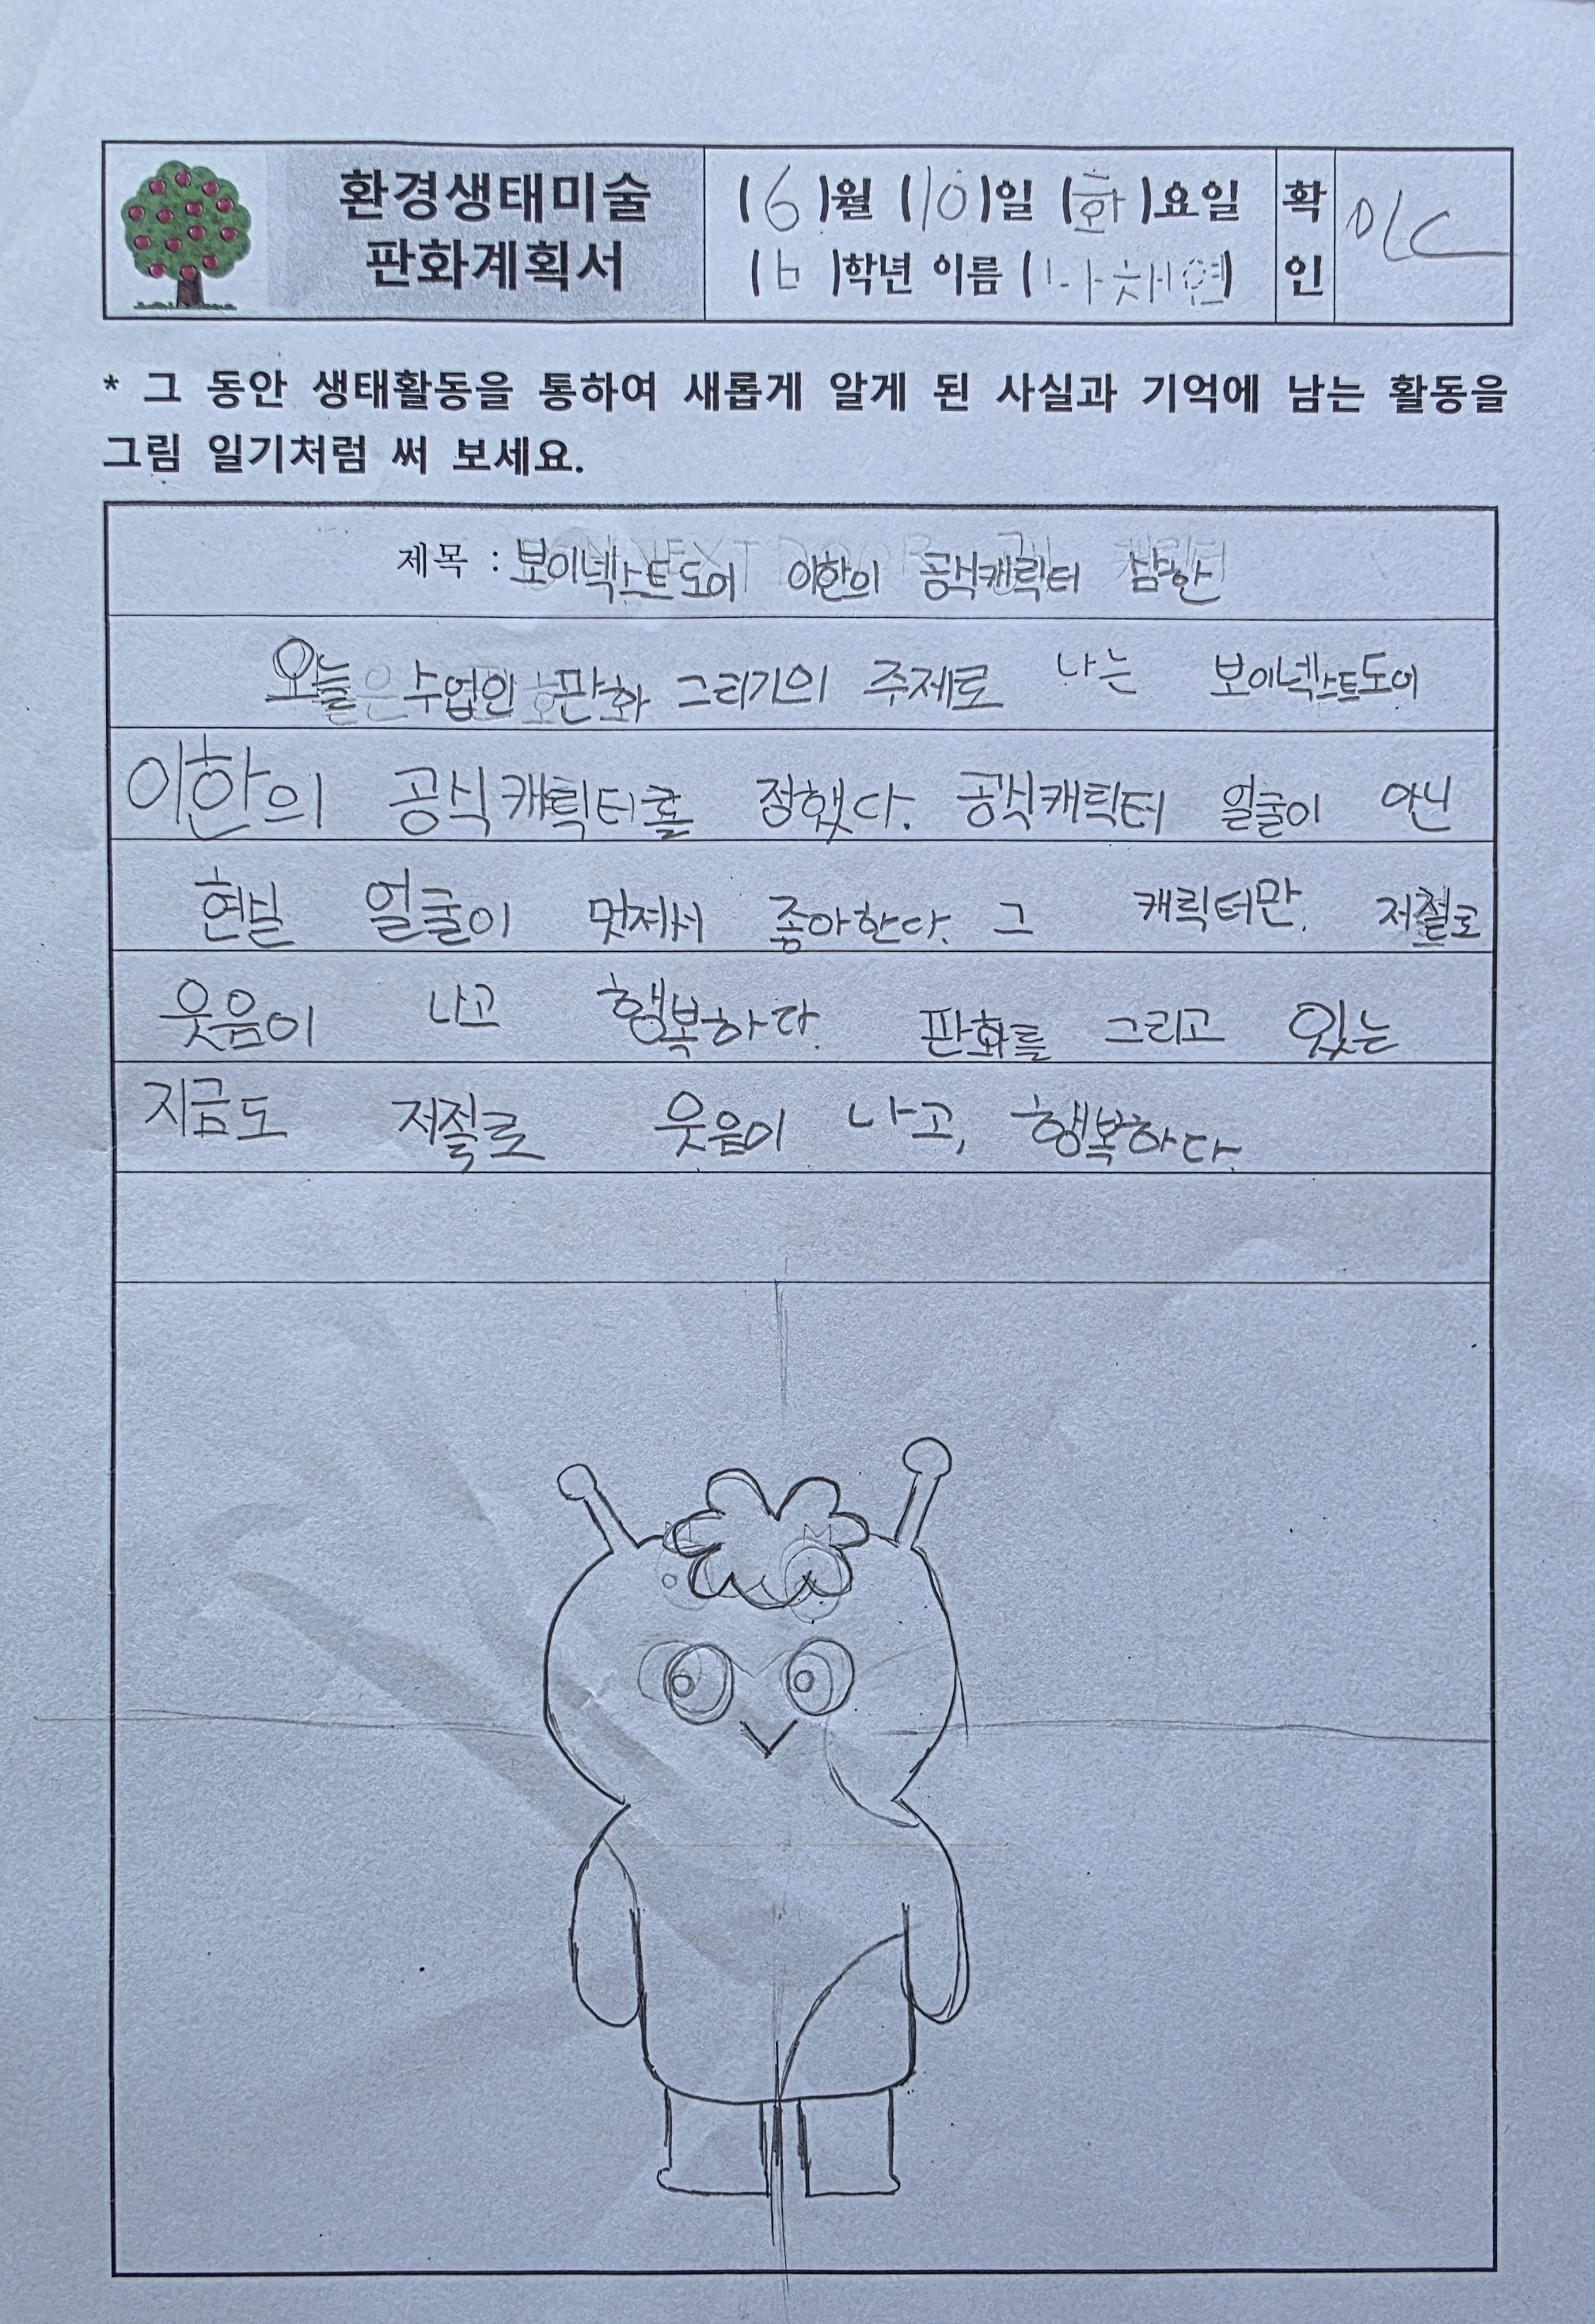 환경생태미술
판화계획서
(6)월 (10)일 (화)요일
(6)학년 이름 (나채연)
확
인
* 그 동안 생태활동을 통하여 새롭게 알게 된 사실과 기억에 남는 활동을
그림 일기처럼 써 보세요.
제목 : 보이넥스트도어 이한의 공식캐릭터 쌈한
오늘 수업인 판화 그리기의 주제로 나는 보이넥스트도어
이한의 공식캐릭터를 정했다. 공식캐릭터 얼굴이 아닌
현실 얼굴이 멋져서 좋아한다. 그 캐릭터만 저절로
웃음이 나고 행복하다. 판화를 그리고 있는
지금도 저절로 웃음이 나고, 행복하다.